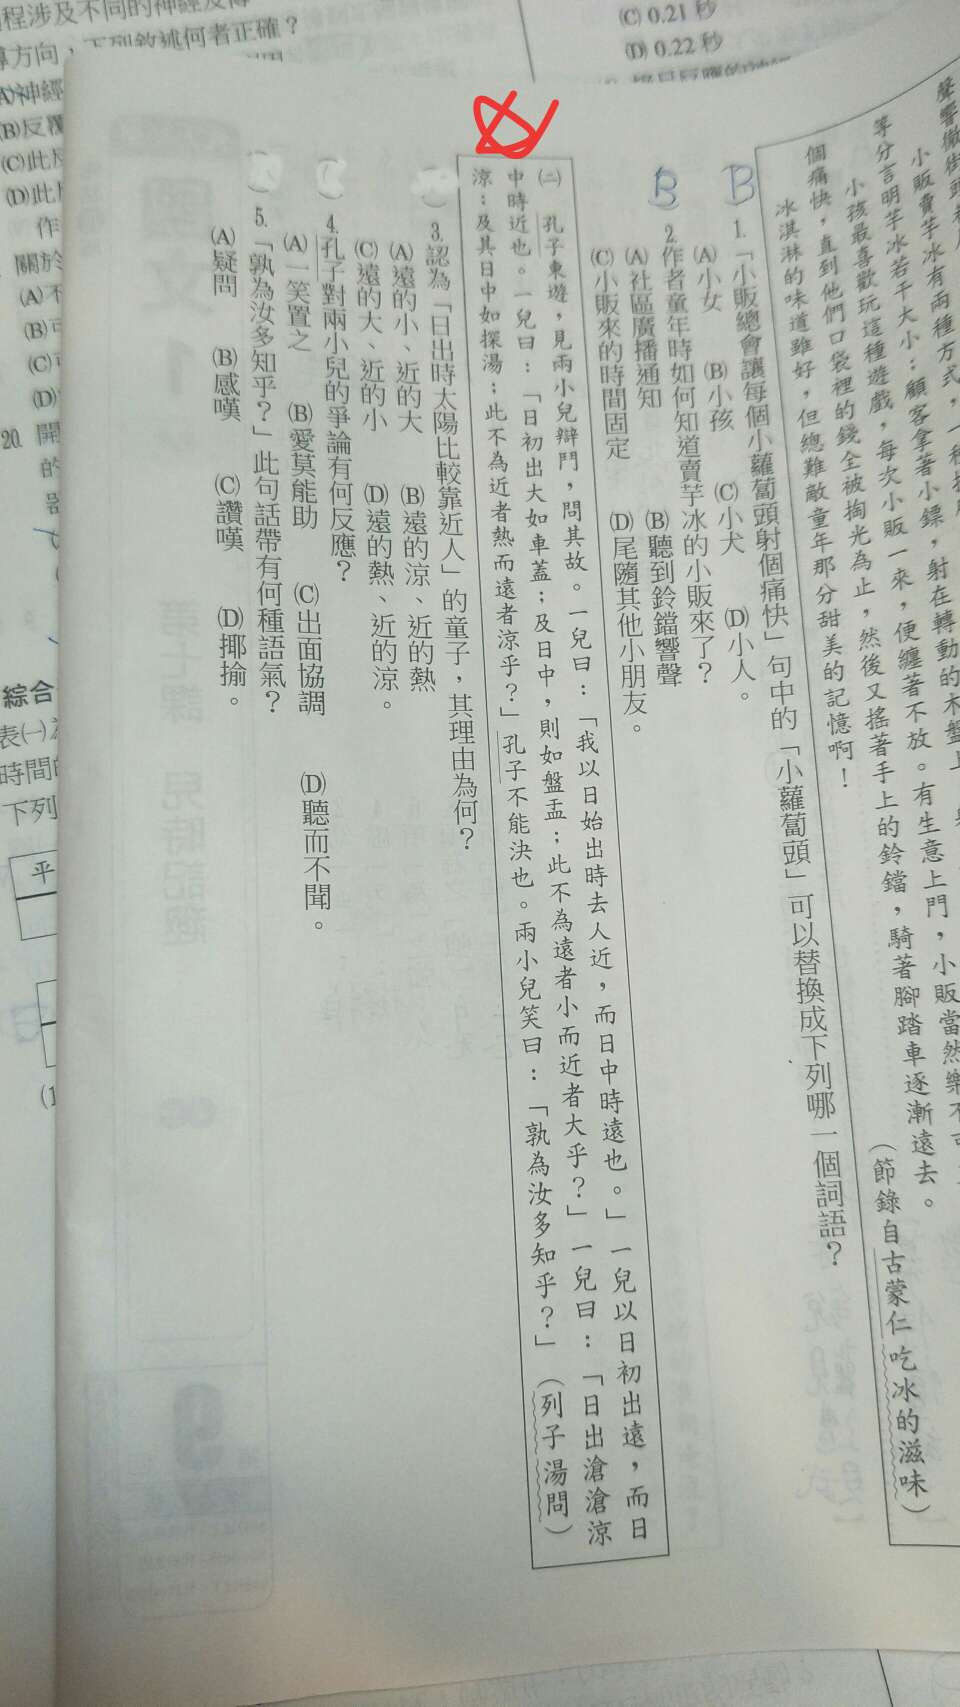 聲響徹街頭巷尾
小販賣芋冰有兩種方式，一種
等分言明芋冰若干大小；顧客拿著小鏢，射在轉動的木盤上
小孩最喜歡玩這種遊戲，每次小販一來，便纏著不放。有生意上門，小販當然樂不可
個痛快，直到他們口袋裡的錢全被掏光為止，然後又搖著手上的鈴鐺，騎著腳踏車逐漸遠去。
冰淇淋的味道雖好，但總難敵童年那分甜美的記憶啊！
（節錄自古蒙仁吃冰的滋味）
B 1.「小販總會讓每個小蘿蔔頭射個痛快」句中的「小蘿蔔頭」可以替換成下列哪一個詞語？
(A)小女 (B)小孩 (C)小犬 (D)小人。
B 2.作者童年時如何知道賣芋冰的小販來了？
(A)社區廣播通知 (B)聽到鈴鐺響聲
(C)小販來的時間固定 (D)尾隨其他小朋友。
㈡ 孔子東遊，見兩小兒辯鬥，問其故。一兒曰：「我以日始出時去人近，而日中時遠也。」一兒以日初出遠，而日
中時近也。一兒曰：「日初出大如車蓋；及日中，則如盤盂；此不為遠者小而近者大乎？」一兒曰：「日出滄滄涼
涼；及其日中如探湯；此不為近者熱而遠者涼乎？」孔子不能決也。兩小兒笑曰：「孰為汝多知乎？」（列子湯問）
3.認為「日出時太陽比較靠近人」的童子，其理由為何？
(A)遠的小、近的大 (B)遠的涼、近的熱
(C)遠的大、近的小 (D)遠的熱、近的涼。
4.孔子對兩小兒的爭論有何反應？
(A)一笑置之 (B)愛莫能助 (C)出面協調 (D)聽而不聞。
5.「孰為汝多知乎？」此句話帶有何種語氣？
(A)疑問 (B)感嘆 (C)讚嘆 (D)揶揄。
程涉及不同的神經及傳
導方向，下列敘述何者正確？
(A)神經
(B)反覆
(C)此
(D)此
作
關於
(A)不
(B)可
(C)可
(D)
20. 開
的
綜合
表㈠
時間的
下列
平
(C) 0.21 秒
(D) 0.22 秒